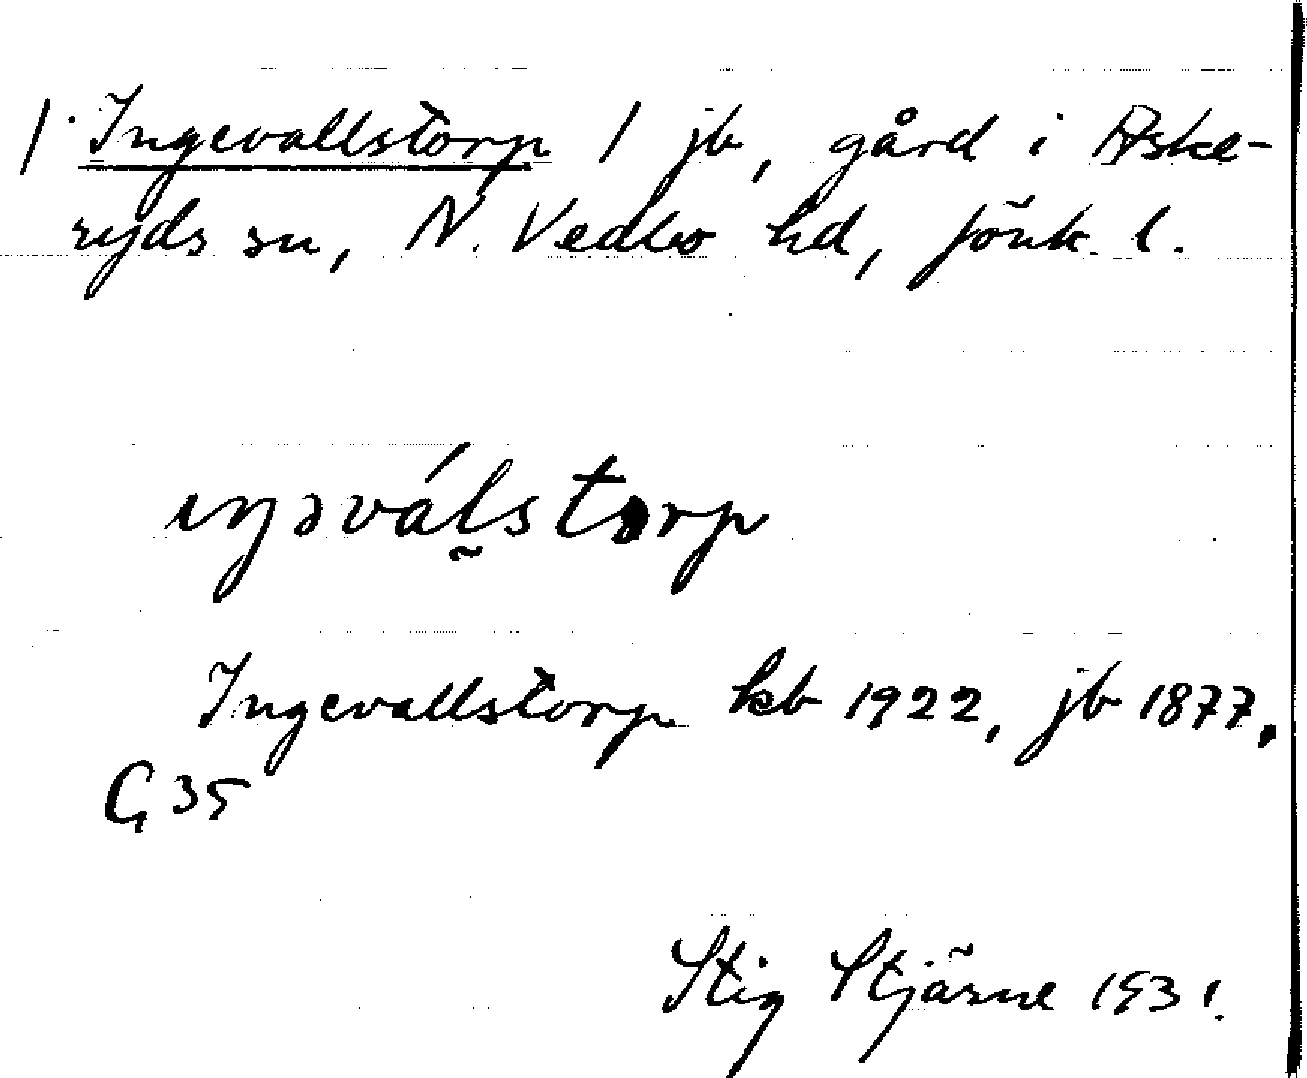 / Ingevallstorp 1 jb, gård i Aske-
ryds sn, N. Vedbo hd, Jönk. l.
ıŋəválstorp
Ingevallstorp kb 1922, jb 1877,
G 35
Stig Stjärne 1931.